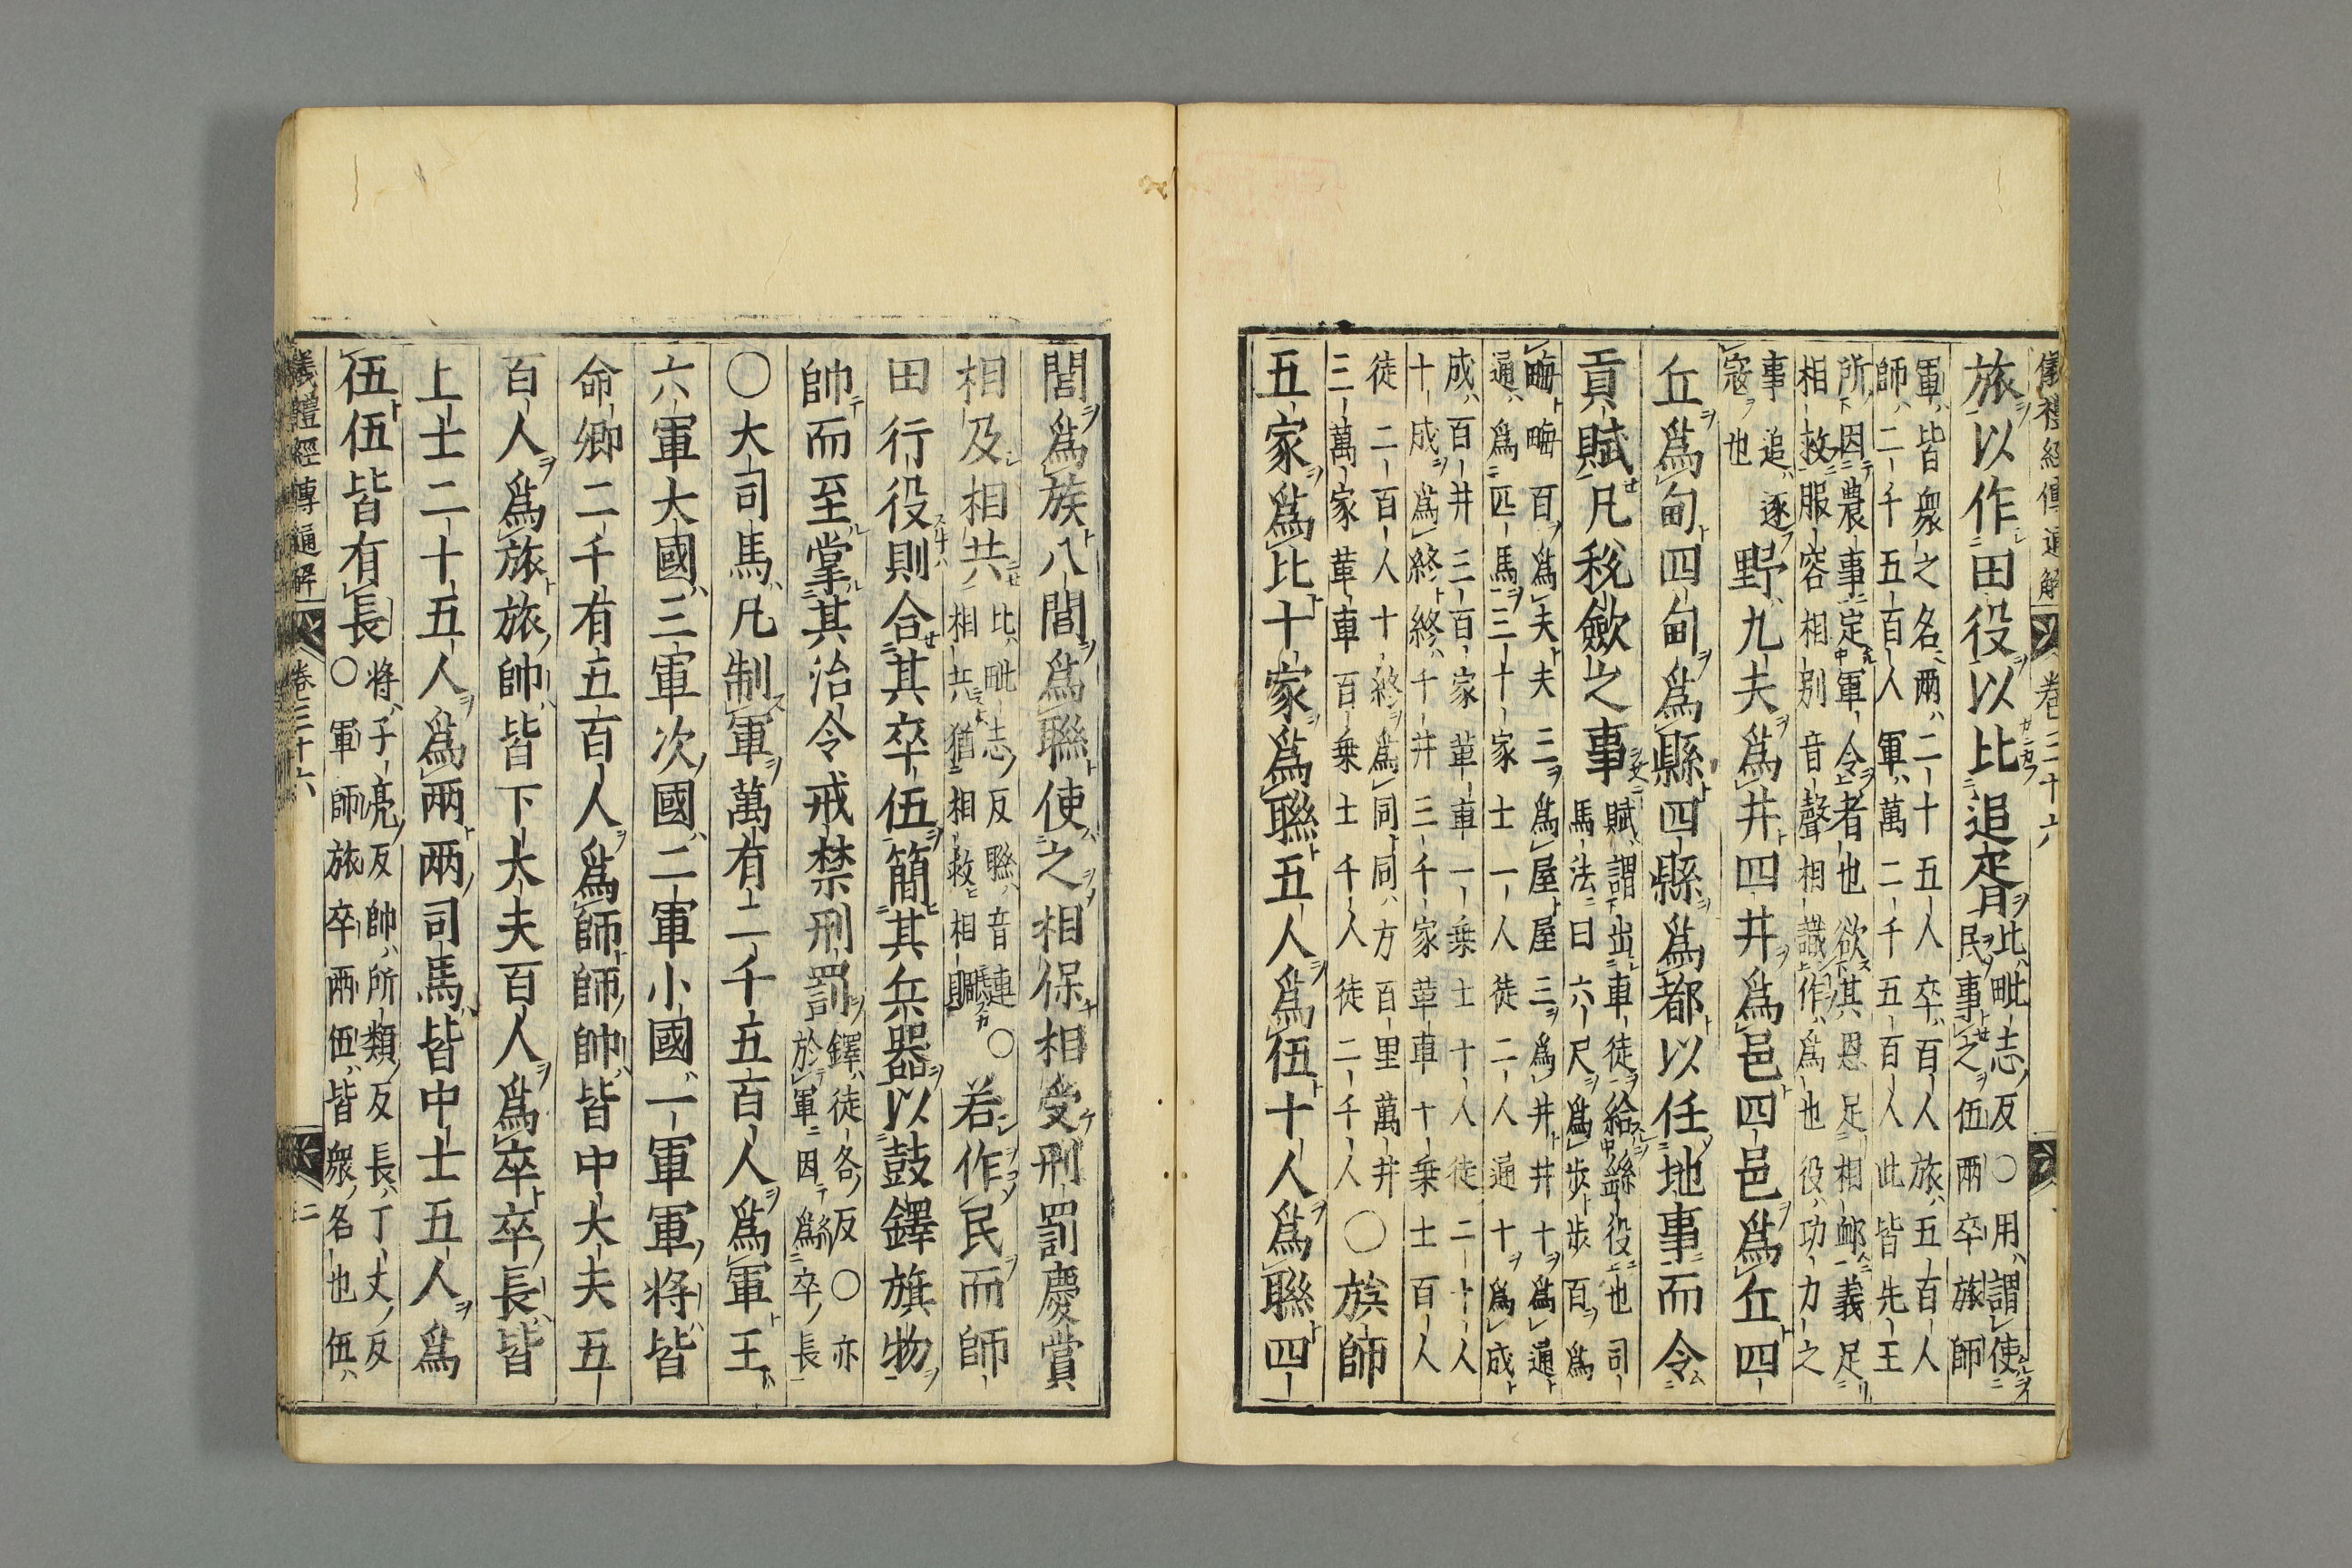 儀禮經傳通解 卷三十六
旅以作田役以比追胥比毗志反○用謂使
民事之伍兩卒旅師
軍皆衆之名兩二十五人卒百人旅五百人
師二千五百人軍萬二千五百人此皆先王
所因農事定軍令者也欲其恩足相䘏義足
相救服容相別音聲相識作爲也役功力之
事追逐
寇也
野九夫爲井四井爲邑四邑爲丘四
丘爲甸四甸爲縣四縣爲都以任地事而令
貢賦凡稅斂之事賦謂出車徒給繇役也司
馬法曰六尺爲步步百爲
畮畮百爲夫夫三爲屋屋三爲井井十爲通
通爲匹馬三十家士一人徒二人通十爲成
成百井三百家革車一乗士十人徒二十人
十成爲終終千井三千家革車十乗士百人
徒二百人十終爲同同方百里萬井
三萬家革車百乗士千人徒二千人
○族師
五家爲比十家爲聯五人爲伍十人爲聯四
閭爲族八閭爲聯使之相保相受刑罰慶賞
相及相共比毗志反聯音連
相共猶相救相賙
○若作民而師
田行役則合其卒伍簡其兵器以鼓鐸旗物
帥而至掌其治令戒禁刑罰鐸徒各反○亦
於軍因爲卒長
○大司馬凡制軍萬有二千五百人爲軍王
六軍大國三軍次國二軍小國一軍軍將皆
命卿二千有五百人爲師師帥皆中大夫五
百人爲旅旅帥皆下大夫百人爲卒卒長皆
上士二十五人爲兩兩司馬皆中士五人爲
伍伍皆有長將子亮反帥所類反長丁丈反
○軍師旅卒兩伍皆衆名也伍
儀禮經傳通解 卷三十六 二